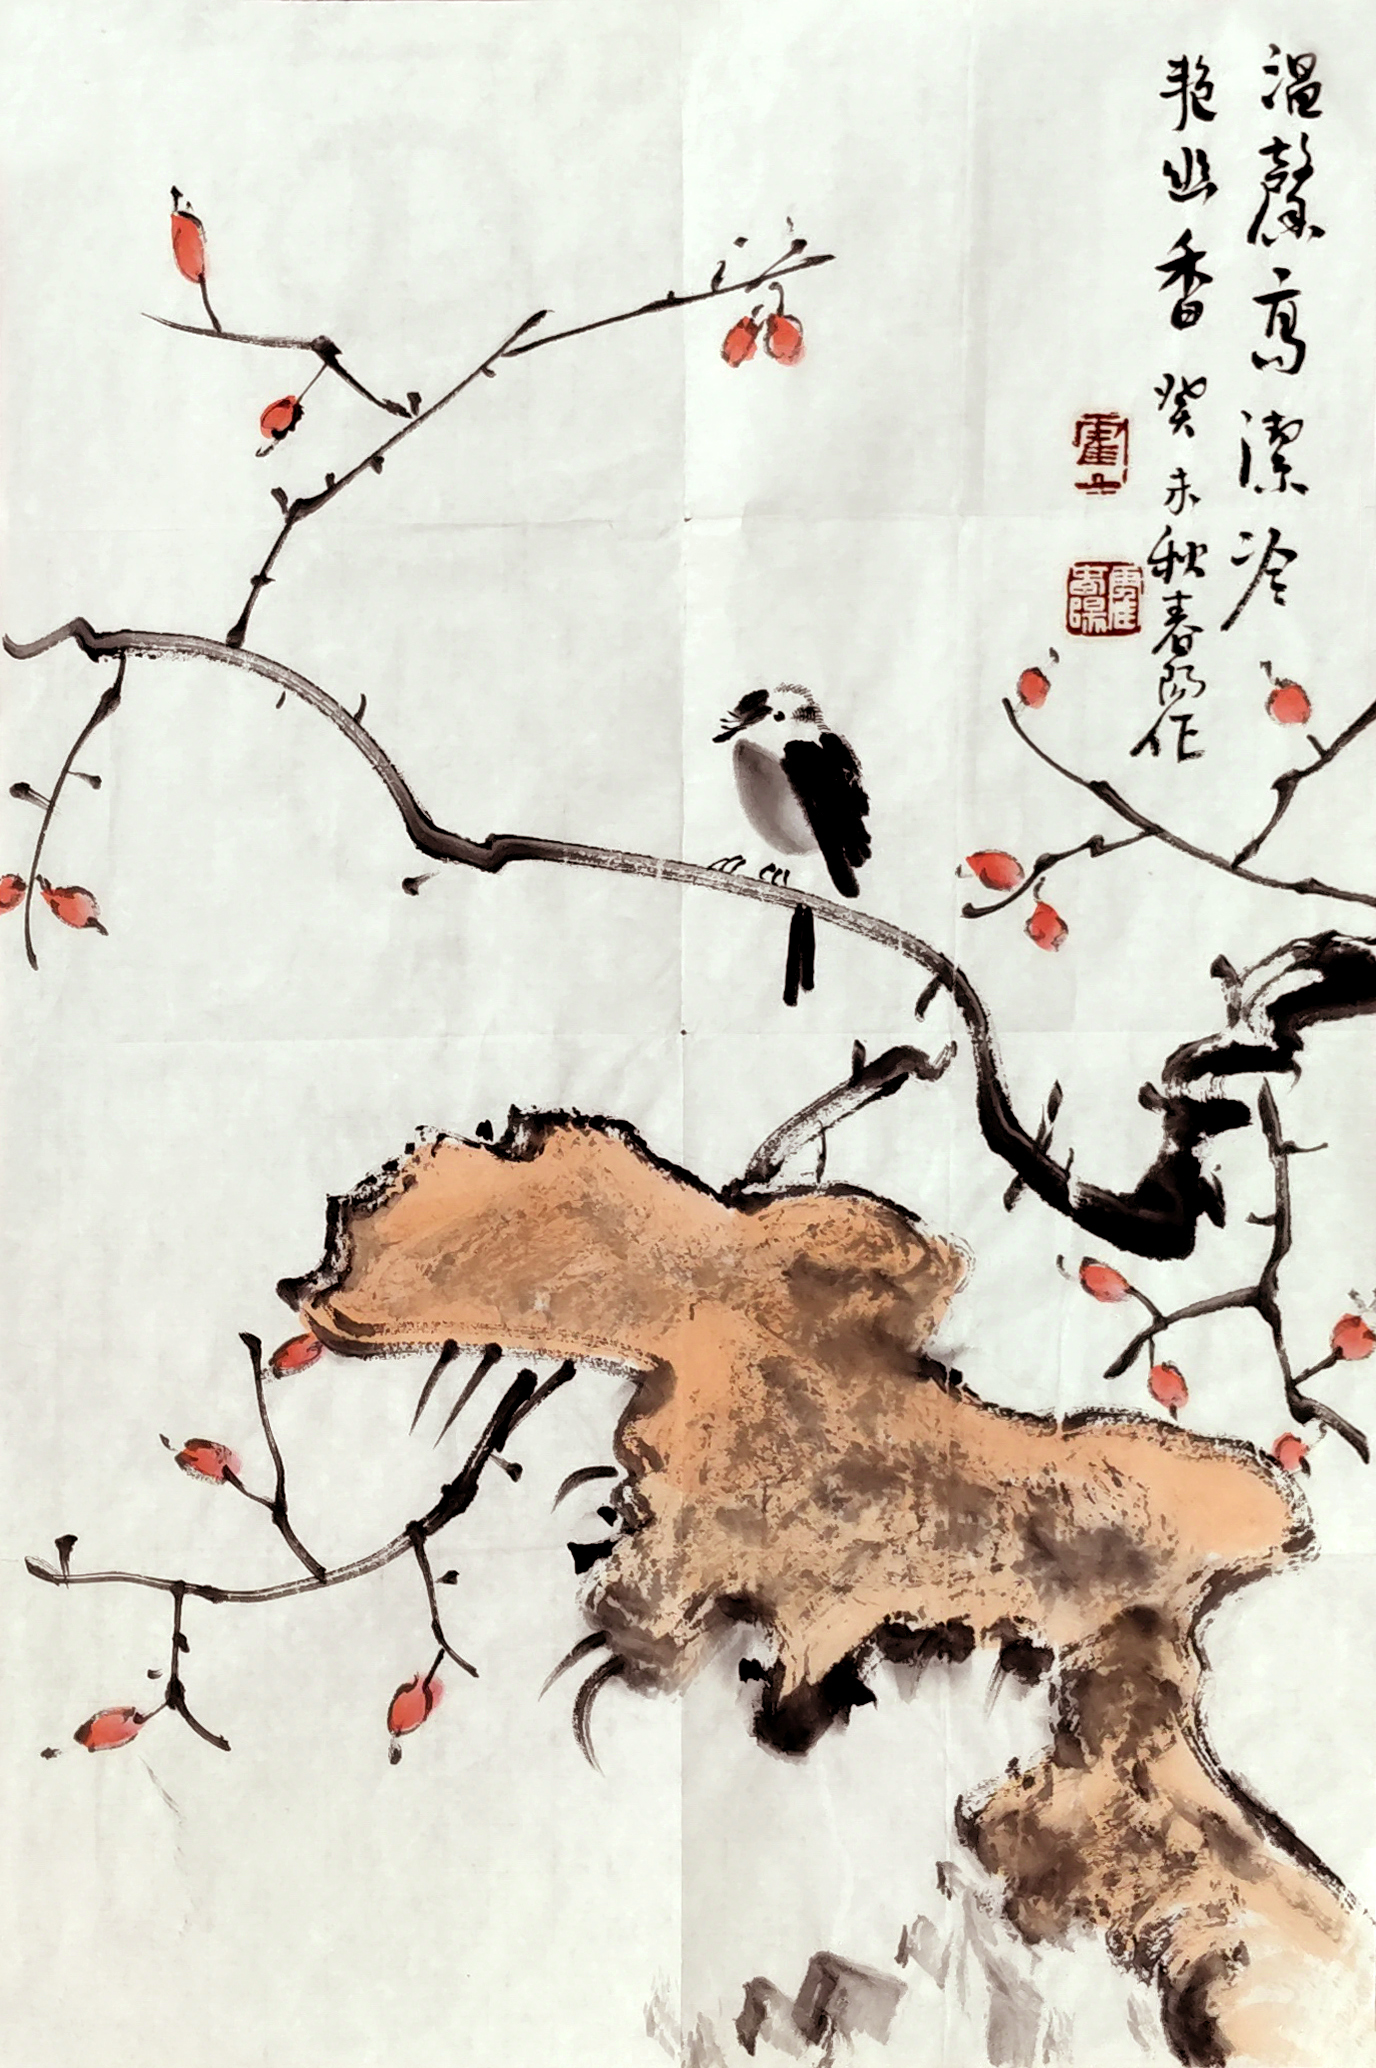 温馨高潔冷
艳幽香 癸未秋春陽作